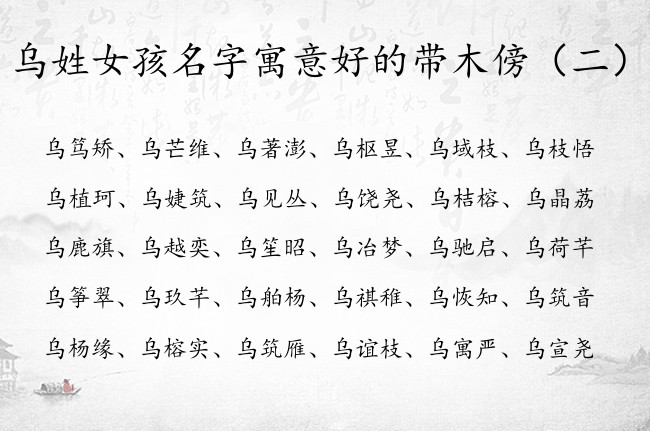 乌姓女孩名字寓意好的带木傍（二）
乌笃矫、乌芒维、乌著澎、乌枢昱、乌域枝、乌枝悟
乌植珂、乌婕筑、乌见丛、乌饶尧、乌桔榕、乌晶荔
乌鹿旗、乌越奕、乌笙昭、乌冶梦、乌驰启、乌荷芊
乌筝翠、乌玖芊、乌舶杨、乌祺稚、乌恢知、乌筑音
乌杨缘、乌榕实、乌筑雁、乌谊枝、乌寓严、乌宣尧